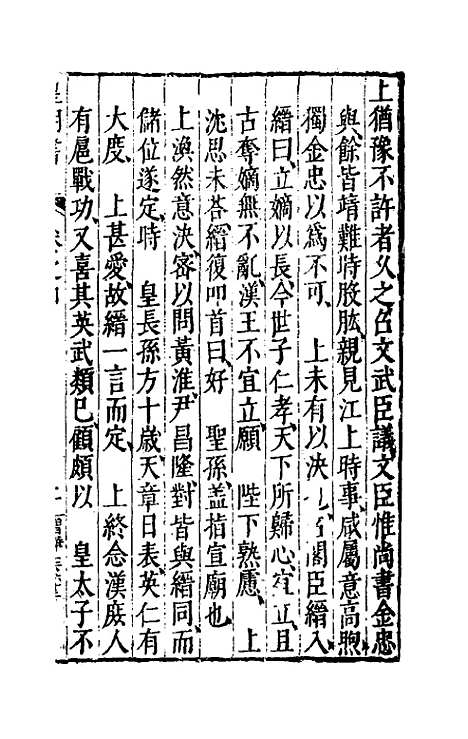 上猶豫不許者久之召文武臣議文臣惟尚書金忠
與餘皆靖難時股肱親見江上時事咸屬意高煦
獨金忠以爲不可　上未有以決　召閣臣縉入
縉曰立嫡以長今世子仁孝天下所歸心宜立且
古奪嫡無不亂漢王不宜立願　陛下熟慮　上
沈思未答縉復叩首曰好　聖孫蓋指宣廟也
上渙然意決密以問黃淮尹昌隆對皆與縉同而
儲位遂定時　皇長孫方十歲天章日表英仁有
大度　上甚愛故縉一言而定　上終念漢庶人
有扈戰功又喜其英武類已顧頗以　皇太子不
皇明書　卷之